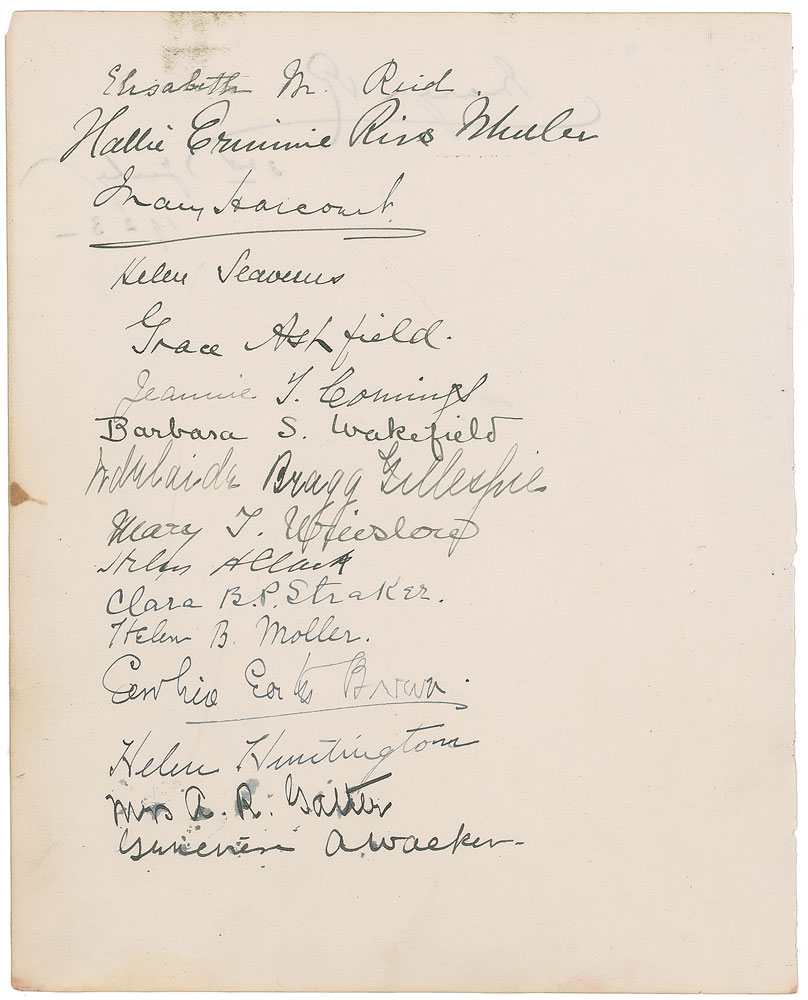 Elisabeth M. Reid.
Hallie Erminie Rives Wheeler
Mary Harcourt
Helen Seaverns
Grace Ashfield.
Jeannie T. Comings
Barbara S. Wakefield
Adelaide Bragg Gillespie
Mary T. Winslow
Helen A Clark
Clara B.P. Straker.
Helen B. Moller.
Brown.
Helen Huntington
Mrs A. R.
Genevieve A Walker-